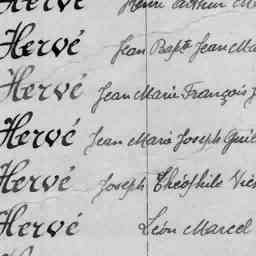 Hervé Jean Bapte Jean Ma
Hervé Jean Marie François
Hervé Jean Marie Joseph Guil
Hervé Joseph Théophile
Hervé Léon Marcel